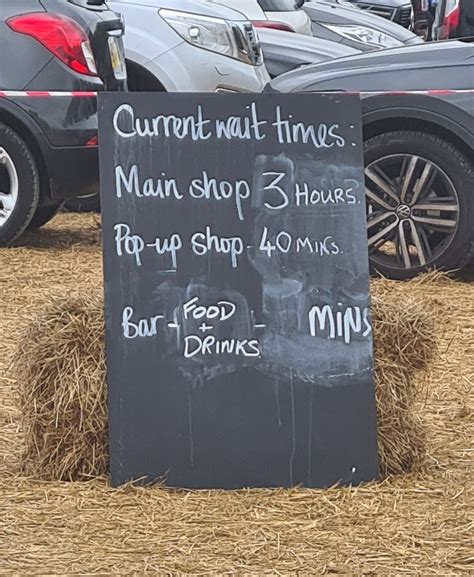 Current wait times:
Main shop 3 HOURS.
Pop-up shop - 40 MINS.
Bar - FOOD + DRINKS - MINS